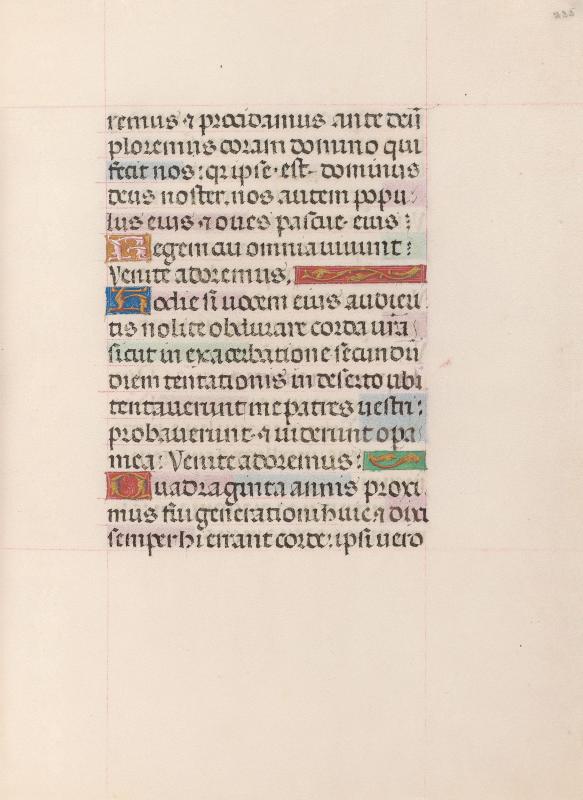 235
remus ⁊ procidamus ante deū
ploremus coram domino qui
fecit nos: qr ipse est dominus
deus noster. nos autem popu
lus eius ⁊ oues pascue eius:
Regem cui omnia uiuunt:
Venite adoremus.
Hodie si uocem eius audieri
tis nolite obdurare corda ur̄a
sicut in exacerbatione secundū
diem tentationis in deserto ubi
tentauerunt me patres uestri:
probauerunt ⁊ uiderunt opa
mea: Venite adoremus:
Quadraginta annis proxi
mus fui generationi huic ⁊ dixi
semper hi errant corde: ipsi uero